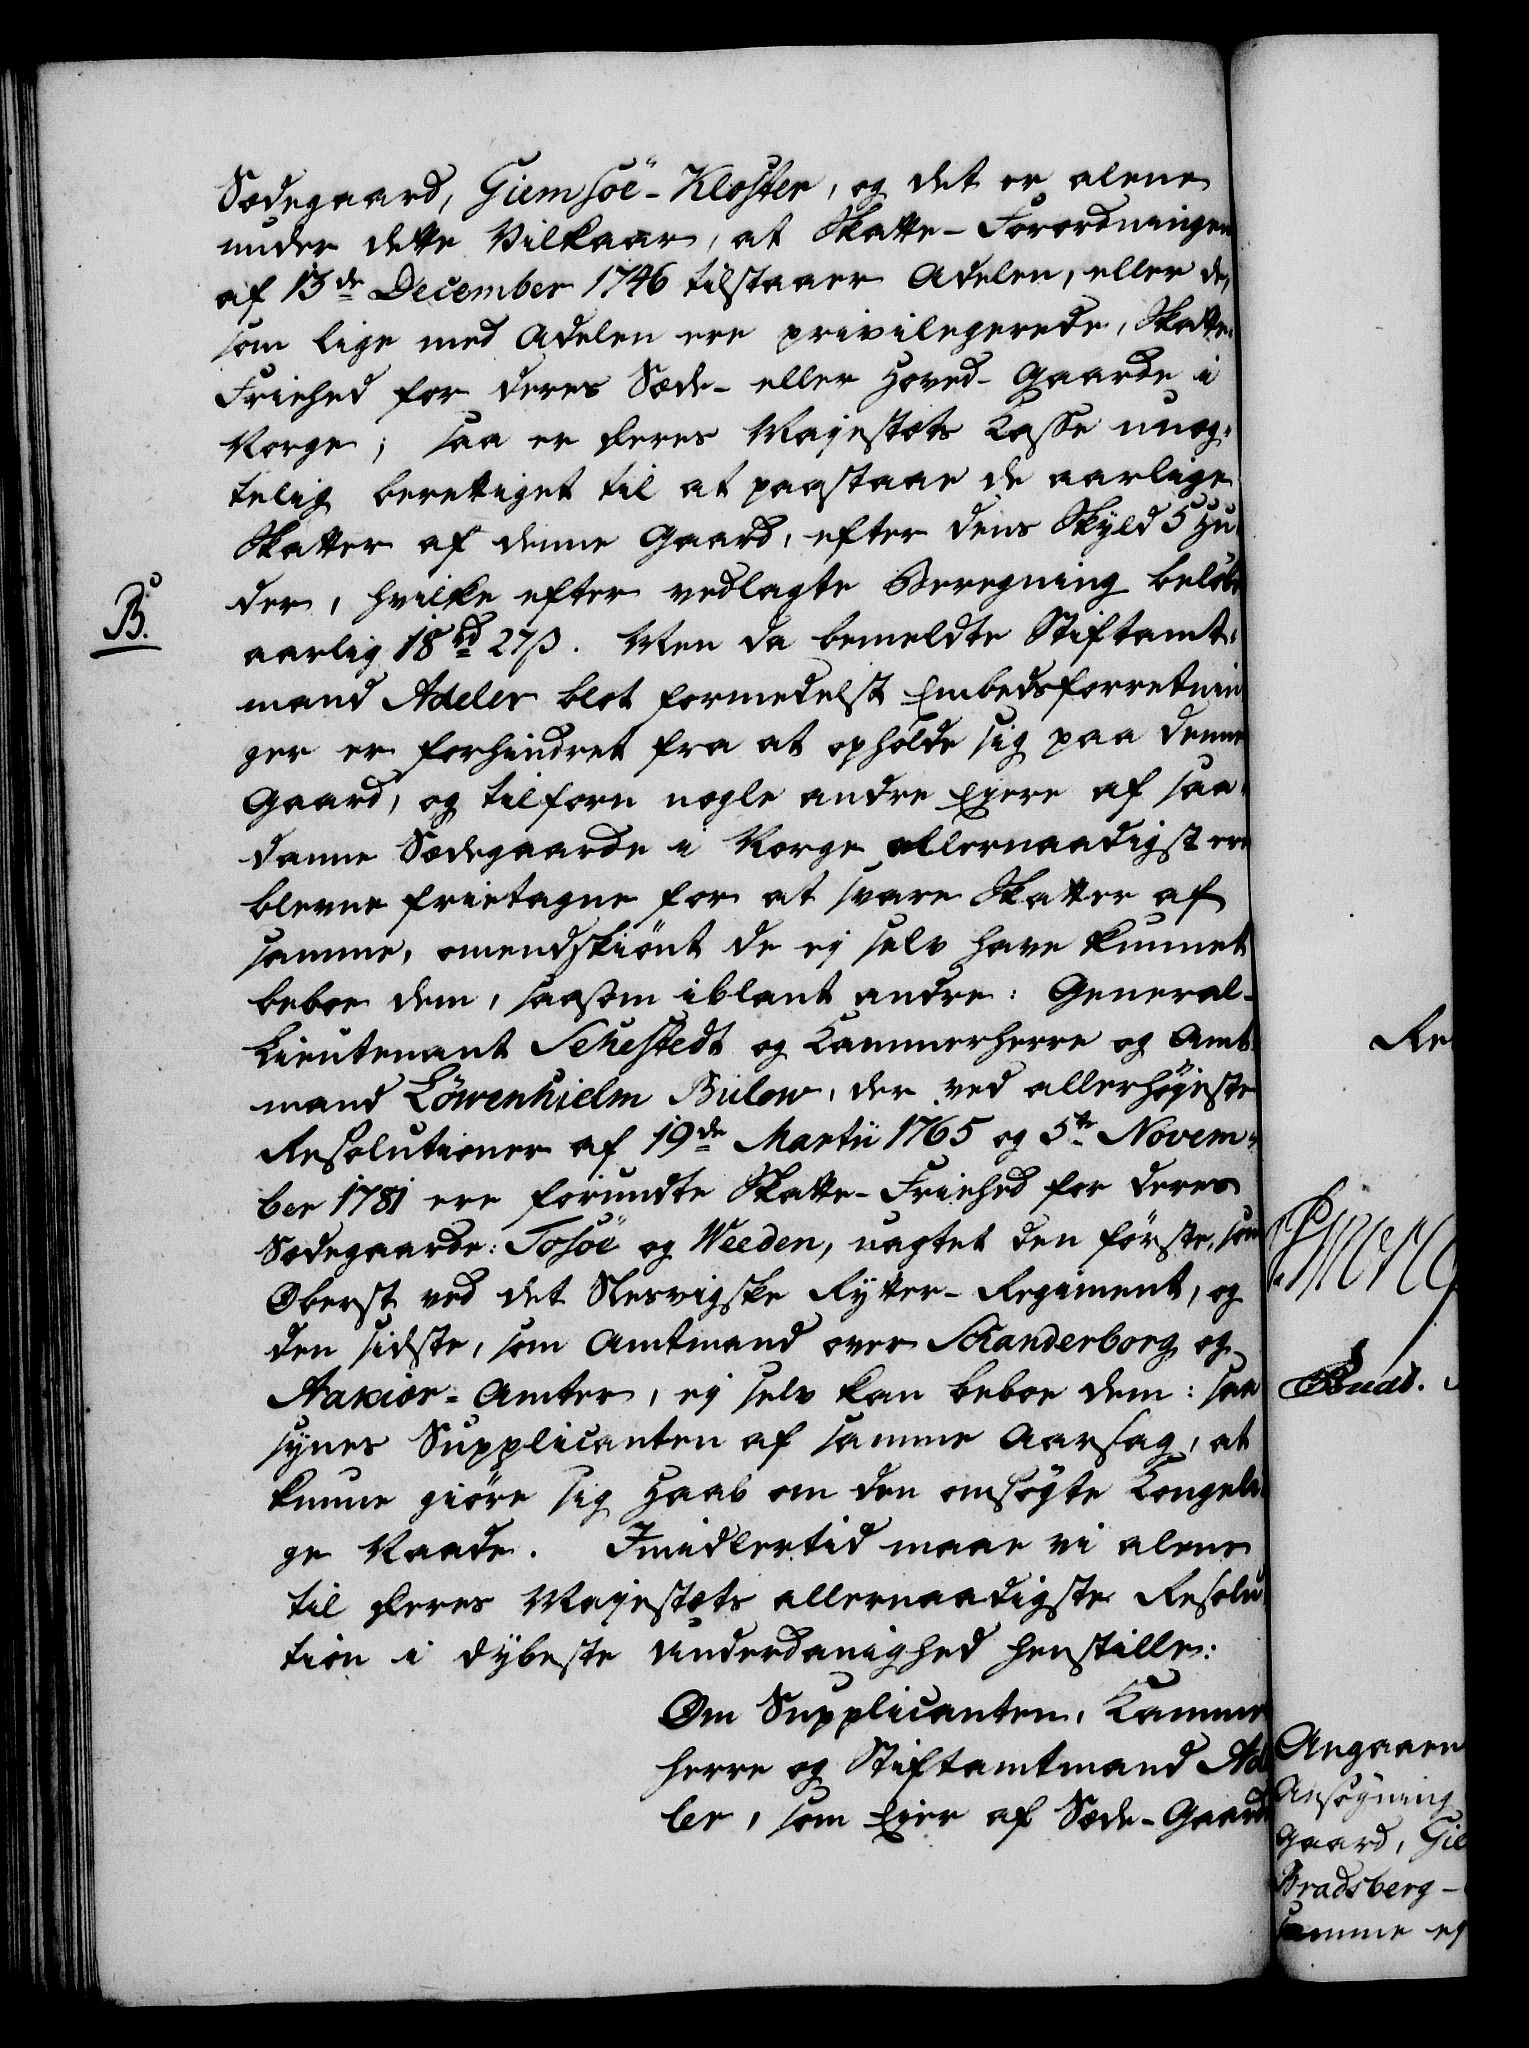 Sædegaard, Giemsöe-Kloster, og det er alene
under dette Vilkaar, at Skatte-Forordningen
af 13de December 1746 tilstaaer Adelen, eller de,
som lige med Adelen ere privilegerede, Skatte-
Friehed for deres Sæde- eller Hoved-Gaarde i
Norge; saa er Deres Majestæts Casse unæg-
telig berettiget til at paastaae de aarlige
Skatter af denne Gaard, efter dens Skyld 5 Hu-
der, hvilke efter vedlagte Beregning beløbe
B.
aarlig 18 rd 27 ß. Men da bemeldte Stiftamt-
mand Adeler blot formedelst Embedsforretnin
ger er forhindret fra at opholde sig paa denne
Gaard, og tilforn nogle andre Eiere af saa-
danne Sædegaarde i Norge allernaadigst ere
blevne frietagne for at svare Skatter af
samme, omendskiönt de ej selv have kunnet
beboe dem, saasom iblant andre: General-
Lieutenant Sehestedt og Kammerherre og Amt-
mand Löwenhielm Bülow, der ved allerhøjeste
Resolutioner af 19de Martii 1765 og 5te Novem-
ber 1781 ere forundte Skatte-Friehed for deres
Sædegaarde: Tosöe og Weeden, uagtet den første, som
Oberst ved det Slesvigske Rytter-Regiment, og
den sidste, som Amtmand over Schanderborg og
Aakiær-Amter, ej selv kan beboe dem: saa
synes Supplicanten af samme Aarsag, at
kunne giöre sig Haab om den omsøgte Kongeli-
ge Naade. Imidlertid maae vi alene
til Deres Majestæts allernaadigste Resolu-
tion i dybeste Underdanighed henstille:
Om Supplicanten, Kammer
herre og Stiftamtmand Ad
ler, som Eier af Sæde-Gaard
Re
Angaaen
Ansøgning
Gaard, Gie
Bradsberg-
samme ej